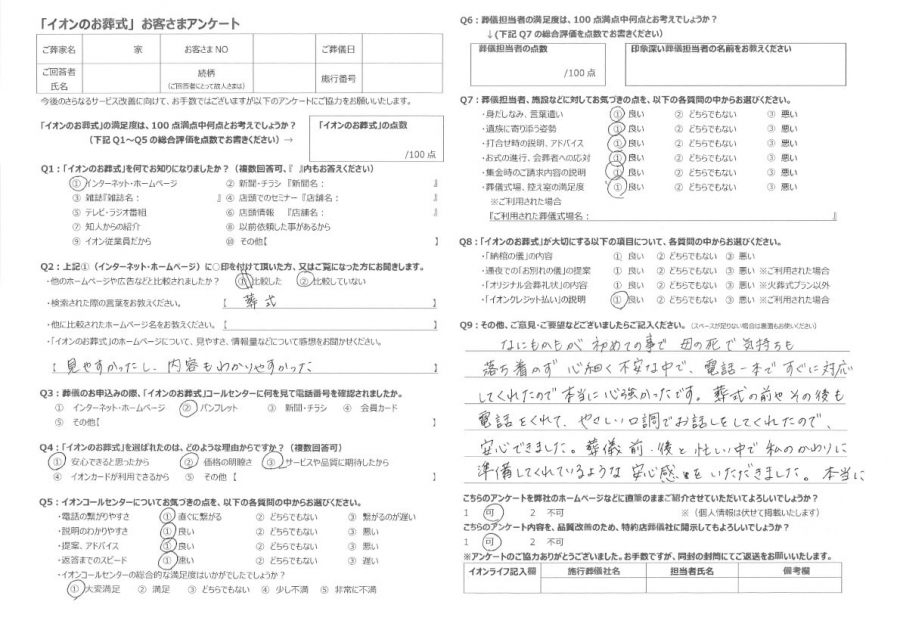 「イオンのお葬式」お客さまアンケート
ご葬家名 家 お客さまNO ご葬儀日
ご回答者氏名 続柄(ご回答者にとって故人さまは) 施行番号
今後のさらなるサービス改善に向けて、お手数ではございますが以下のアンケートにご協力をお願いいたします。
「イオンのお葬式」の満足度は、100点満点中何点とお考えでしょうか?
(下記Q1~Q5の総合評価を点数でお書きください)→
「イオンのお葬式」の点数
/100点
Q1:「イオンのお葬式」を何でお知りになりましたか?(複数回答可、『 』内もお答えください)
① インターネット・ホームページ ② 新聞・チラシ『新聞名: 』
③ 雑誌『雑誌名: 』 ④ 店頭でのセミナー『店舗名: 』
⑤ テレビ・ラジオ番組 ⑥ 店頭情報 『店舗名: 』
⑦ 知人からの紹介 ⑧ 以前依頼した事があるから
⑨ イオン従業員だから ⑩ その他【 】
Q2:上記①(インターネット・ホームページ)に○印を付けて頂いた方、又はご覧になった方にお聞きします。
・他のホームページや広告などと比較されましたか? ① 比較した ② 比較していない
・検索された際の言葉をお教えください。 【 葬式 】
・他に比較されたホームページ名をお教えください。【 】
・「イオンのお葬式」のホームページについて、見やすさ、情報量などについて感想をお聞かせください。
【 見やすかったし、内容もわかりやすかった 】
Q3:葬儀のお申込みの際、「イオンのお葬式」コールセンターに何を見て電話番号を確認されましたか。
① インターネット・ホームページ ② パンフレット ③ 新聞・チラシ ④ 会員カード
⑤ その他【 】
Q4:「イオンのお葬式」を選ばれたのは、どのような理由からですか?(複数回答可)
① 安心できると思ったから ② 価格の明瞭さ ③ サービスや品質に期待したから
④ イオンカードが利用できるから ⑤ その他【 】
Q5:イオンコールセンターについてお気づきの点を、以下の各質問の中からお選びください。
・電話の繋がりやすさ ① 直ぐに繋がる ② どちらでもない ③ 繋がるのが遅い
・説明のわかりやすさ ① 良い ② どちらでもない ③ 悪い
・提案、アドバイス ① 良い ② どちらでもない ③ 悪い
・返答までのスピード ① 速い ② どちらでもない ③ 遅い
・イオンコールセンターの総合的な満足度はいかがでしたでしょうか?
① 大変満足 ② 満足 ③ どちらでもない ④ 少し不満 ⑤ 非常に不満
Q6:葬儀担当者の満足度は、100点満点中何点とお考えでしょうか?
↓(下記Q7の総合評価を点数でお書きください)
葬儀担当者の点数
/100点
印象深い葬儀担当者の名前をお教えください
Q7:葬儀担当者、施設などに対してお気づきの点を、以下の各質問の中からお選びください。
・身だしなみ、言葉遣い ① 良い ② どちらでもない ③ 悪い
・遺族に寄り添う姿勢 ① 良い ② どちらでもない ③ 悪い
・打合せ時の説明、アドバイス ① 良い ② どちらでもない ③ 悪い
・お式の進行、会葬者への応対 ① 良い ② どちらでもない ③ 悪い
・集金時のご請求内容の説明 ① 良い ② どちらでもない ③ 悪い
・葬儀式場、控え室の満足度 ① 良い ② どちらでもない ③ 悪い
※ご利用された場合
『ご利用された葬儀式場名: 』
Q8:「イオンのお葬式」が大切にする以下の項目について、各質問の中からお選びください。
・「納棺の儀」の内容 ① 良い ② どちらでもない ③ 悪い
・通夜での「お別れの儀」の提案 ① 良い ② どちらでもない ③ 悪い ※ご利用された場合
・「オリジナル会葬礼状」の内容 ① 良い ② どちらでもない ③ 悪い ※火葬式プラン以外
・「イオンクレジット払い」の説明 ① 良い ② どちらでもない ③ 悪い ※ご利用された場合
Q9:その他、ご意見・ご要望などございましたらご記入ください。(スペースが足りない場合は裏面もお使いください)
なにもかもが 初めての事で 母の死で気持ちも
落ち着かず 心細く不安な中で、電話一本ですぐに対応
してくれたので本当に心強かったです。葬式の前やその後も
電話をくれて、やさしい口調でお話しをしてくれたので、
安心できました。葬儀前・後と忙しい中で私のかわりに
準備してくれているような安心感をいただきました。本当に
こちらのアンケートを弊社のホームページなどに直筆のままご紹介させていただいてよろしいでしょうか?
1 可 2 不可 ※(個人情報は伏せて掲載いたします)
こちらのアンケート内容を、品質改善のため、特約店葬儀社に開示してもよろしいでしょうか?
1 可 2 不可
※アンケートのご協力ありがとうございました。お手数ですが、同封の封筒にてご返送をお願いいたします。
イオンライフ記入欄 施行葬儀社名 担当者氏名 備考欄